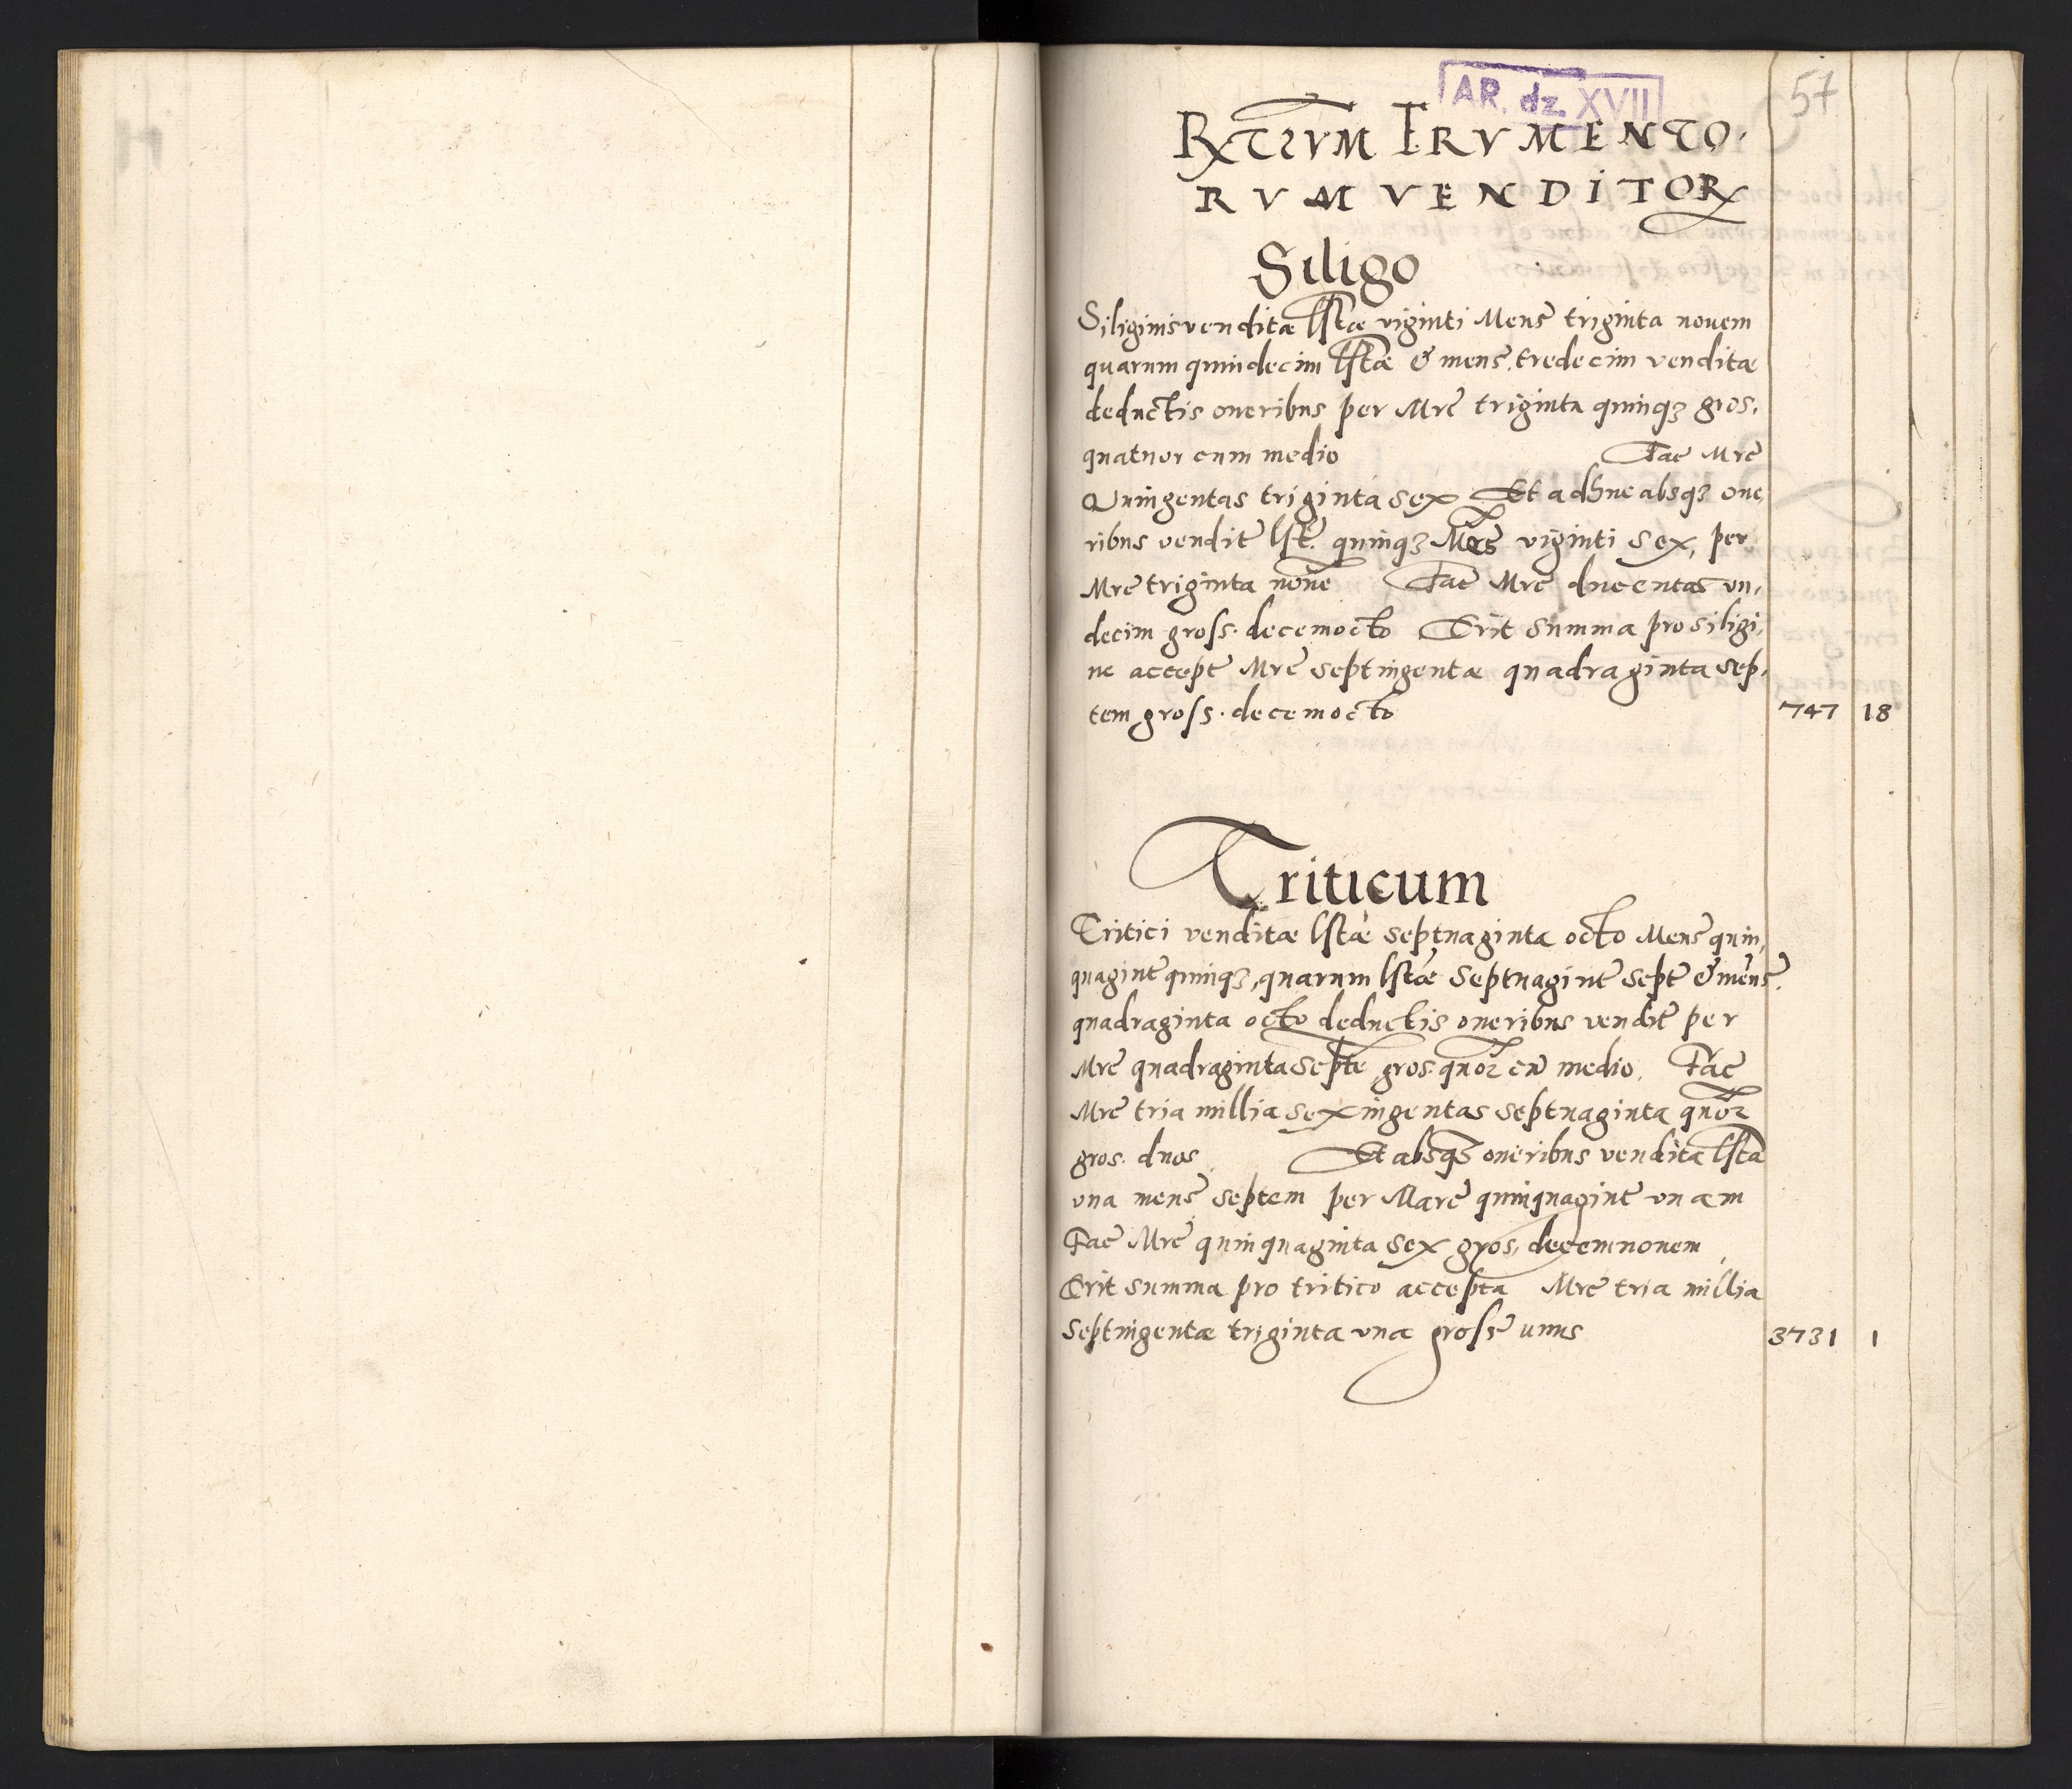 AR. dz. XVII
57
RXTIVM FRVMENTO,
RVM VENDITOR
Siligo
Siliginis venditæ lstæ viginti Mens triginta nouem
quarum quindecim lstæ & mens. tredecim venditæ
deductis oneribus per Mrc triginta quinqz gros.
quatuor cum medio Fac Mrc
Quingentas triginta sex Et adhuc absqz one,
ribus vendit lst. quinqz Mens viginti sex, per
Mrc triginta noue Fac Mrc ducentas vn,
decim gross. decemocto Erit summa pro siligi,
ne accept Mrc septingentæ quadraginta sep,
tem gross. decemocto 747 18
Triticum
Tritici venditæ lstæ septuaginta octo Mens quin,
quagint quinqz, quarum lstæ septuagint sept & mens.
quadraginta octo deductis oneribus vendit per
Mrc quadraginta septe gros. quor cu medio. Fac
Mrc tria millia sexingentas septuaginta quor
gros. duos Et absqz oneribus vendita lsta
vna mens septem per Marc quinquagint vnam
Fac Mrc quinquaginta sex gros, decemnouem
Erit summa pro tritico accepta Mrc tria millia
septingentæ triginta vna gross unus 3731 1